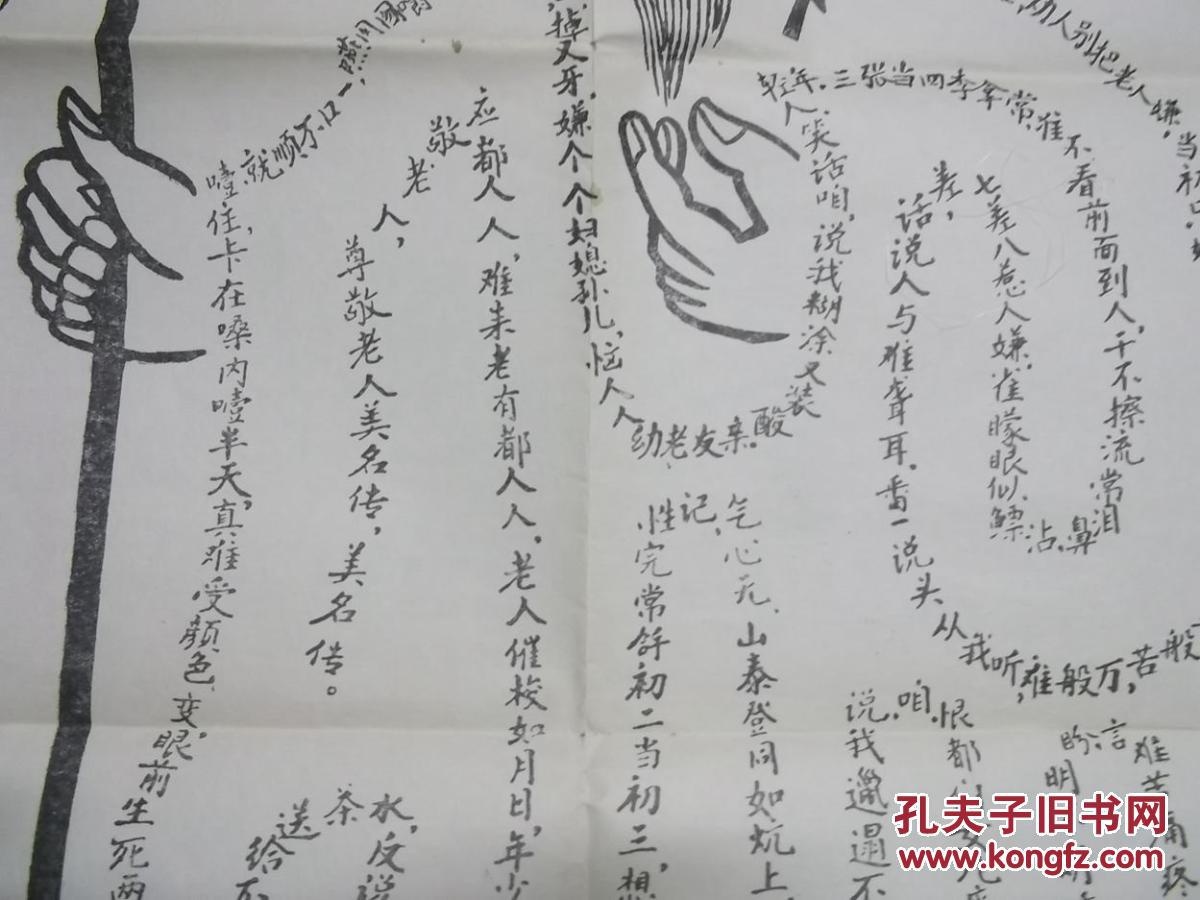 劝人别把老人嫌，当初
难常拿李四当张三，年轻
人笑话咱，说我糊涂又装
酸，亲友老幼
人人恼，儿孙媳妇个个嫌，牙又掉
不看前面到人，千不擦流常泪
鼻沾
七差八惹人嫌，雀朦眼似鳔
差，
话说人与难聋耳，番一说头
从我听，难般万，苦般
言盼
明
难苦痛疼
恨都
咱，
说我邋遢不
气心无，山泰登同如炕上
记，性
完常舒初二当初三，想
应都人人，难来老有都人人。老人催梭如月日，年少
敬老
人，
尊敬老人美名传，美名传。
一口不顺就
噎住，卡在嗓内噎半天，真难受颜色变，眼前生死两
水，反说
茶
送给不
孔夫子旧书网
www.kongfz.com